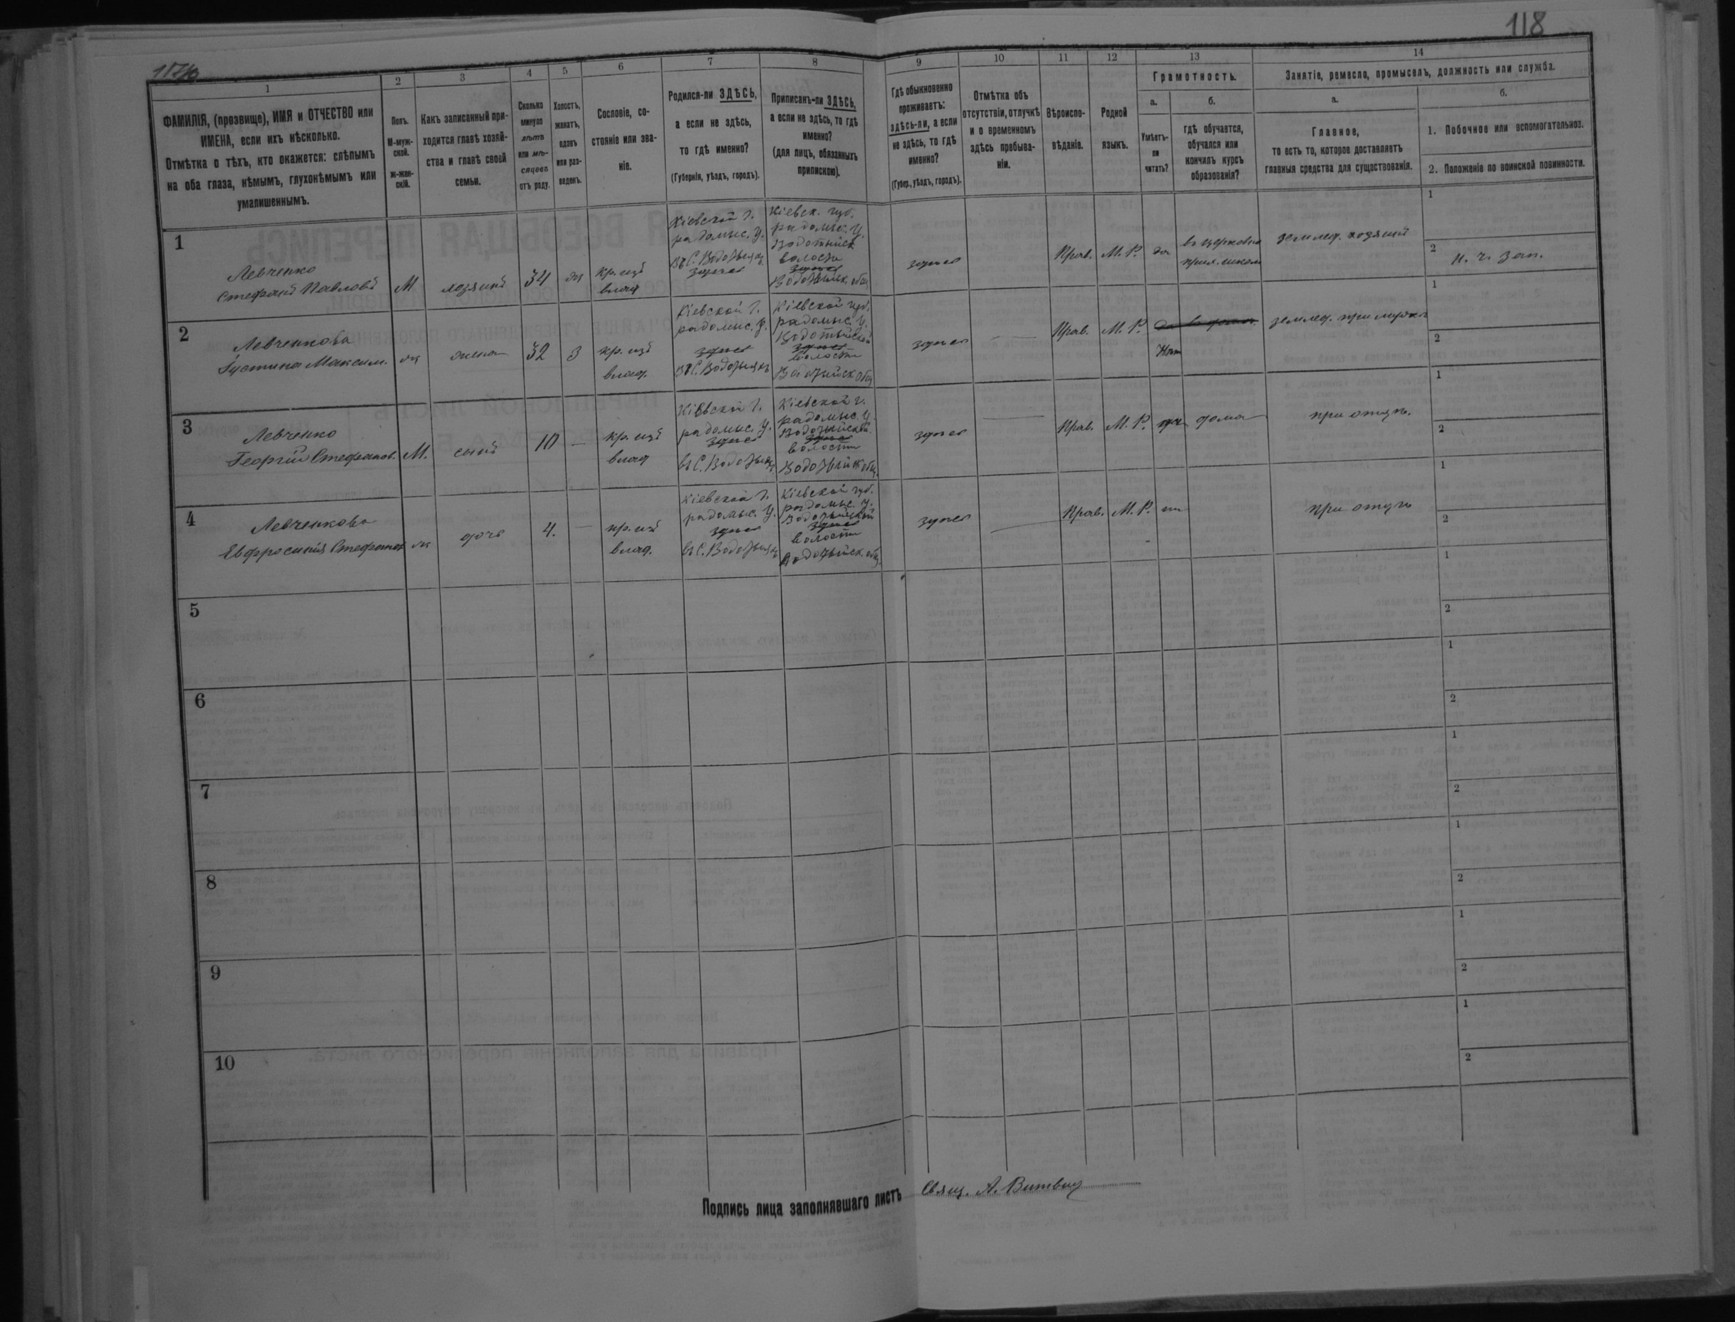 118
1
ФАМИЛІЯ, (прозвище), ИМЯ и ОТЧЕСТВО или
ИМЕНА, если ихъ нѣсколько.
Отмѣтка о тѣхъ, кто окажется: слѣпымъ
на оба глаза, нѣмымъ, глухонѣмымъ или
умалишеннымъ.
2
Полъ.
М-муж-
ской.
ж-жен-
скій.
3
Какъ записанный при-
ходится главѣ хозяй-
ства и главѣ своей
семьи.
4
Сколько
минуло
лѣтъ
или мѣ-
сяцевъ
отъ роду.
5
Холостъ,
женатъ,
вдовъ
или раз-
веденъ.
6
Сословіе, со-
стояніе или зва-
ніе.
7
Родился-ли ЗДѢСЬ,
а если не здѣсь,
то гдѣ именно?
(Губернія, уѣздъ, городъ).
8
Приписанъ-ли ЗДѢСЬ,
а если не здѣсь, то гдѣ
именно?
(для лицъ, обязанныхъ
припискою).
9
Гдѣ обыкновенно
проживаетъ:
здѣсь-ли, а если
не здѣсь, то гдѣ
именно?
(Губер., уѣздъ, городъ).
10
Отмѣтка объ
отсутствіи, отлучкѣ
и о временномъ
здѣсь пребыва-
ніи.
11
Вѣроиспо-
вѣданіе.
12
Родной
языкъ.
13
Грамотность.
а.
Умѣетъ-
ли
читать?
б.
гдѣ обучается,
обучался или
кончилъ курсъ
образованія?
14
Занятіе, ремесло, промыселъ, должность или служба.
а.
Главное,
то есть то, которое доставляетъ
главныя средства для существованія.
б.
1. Побочное или вспомогательное.
2. Положеніе по воинской повинности.
1
Левченко
Стефанъ Павловъ
М
хозяинъ
34
жн
кр. изъ
влад
Кіевской г.
радомыс. у.
здѣсь
Кіевск. губ.
радомыс. у.
волости
здѣсь
здѣсь
Прав.
М. Р.
да
землед. хозяинъ
1
2
н. ч. зап.
2
Левченкова
Густина Максим.
жена
32
З
кр. изъ
влад.
Кіевской г.
радомыс. у.
здѣсь
Кіевской губ.
радомыс. у.
здѣсь
волости
здѣсь
Прав.
М. Р.
Нѣт
землед. при мужѣ
1
2
3
Левченко
Георгій Стефанов.
М.
сынъ
10
кр. изъ
влад
Кіевской г.
радомыс. у.
здѣсь
Кіевской г.
радомыс. у.
здѣсь
волости
здѣсь
Прав.
М. Р.
дома
при отцѣ.
1
2
4
Левченкова
Евфросинія Стефанов.
дочь
4.
кр. изъ
влад.
Кіевской г.
радомыс. у.
здѣсь
Кіевской губ.
радомыс. у.
здѣсь
волости
здѣсь
Прав.
М. Р.
при отцѣ
1
2
5
1
2
6
1
2
7
1
2
8
1
2
9
1
2
10
1
2
Подпись лица заполнявшаго листъ
Свящ. А.